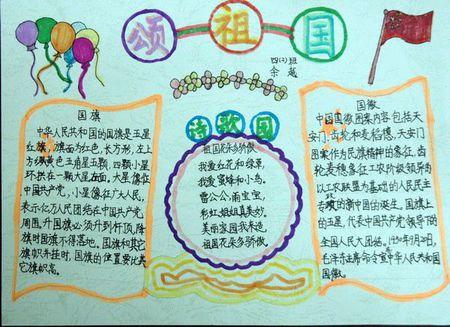 颂祖国
四(2)班
余越
国旗
中华人民共和国的国旗是五星
红旗,旗面为红色,长方形,左上
方缀黄色五角星五颗,四颗小星
环拱在一颗大星右面,大星像征
中国共产党,小星像征广大人民,
表示亿万人民团结在中国共产党
周围,升国旗必须升到杆顶,降
旗时国旗不得落地。国旗和其它
旗帜并挂时,国旗的位置要比其
它旗帜高。
诗歌园
祖国花朵多骄傲
我爱红花和绿草,
我爱蜜蜂和小鸟。
雷公公,雨宝宝,
彩虹姐姐真美妙。
美丽家园我来造,
祖国花朵多骄傲。
国徽
中国国徽图案内容包括天
安门、齿轮和麦稻穗,天安门
图案作为民族精神的象征,齿
轮麦穗象征工人阶级领导的
以工农联盟为基础的人民民主
专政的新中国的诞生。国旗上
的五星,代表中国共产党领导下的
全国人民大团结。1950年9月20日,
毛泽东主席命令宣中华人民共和国
国徽。